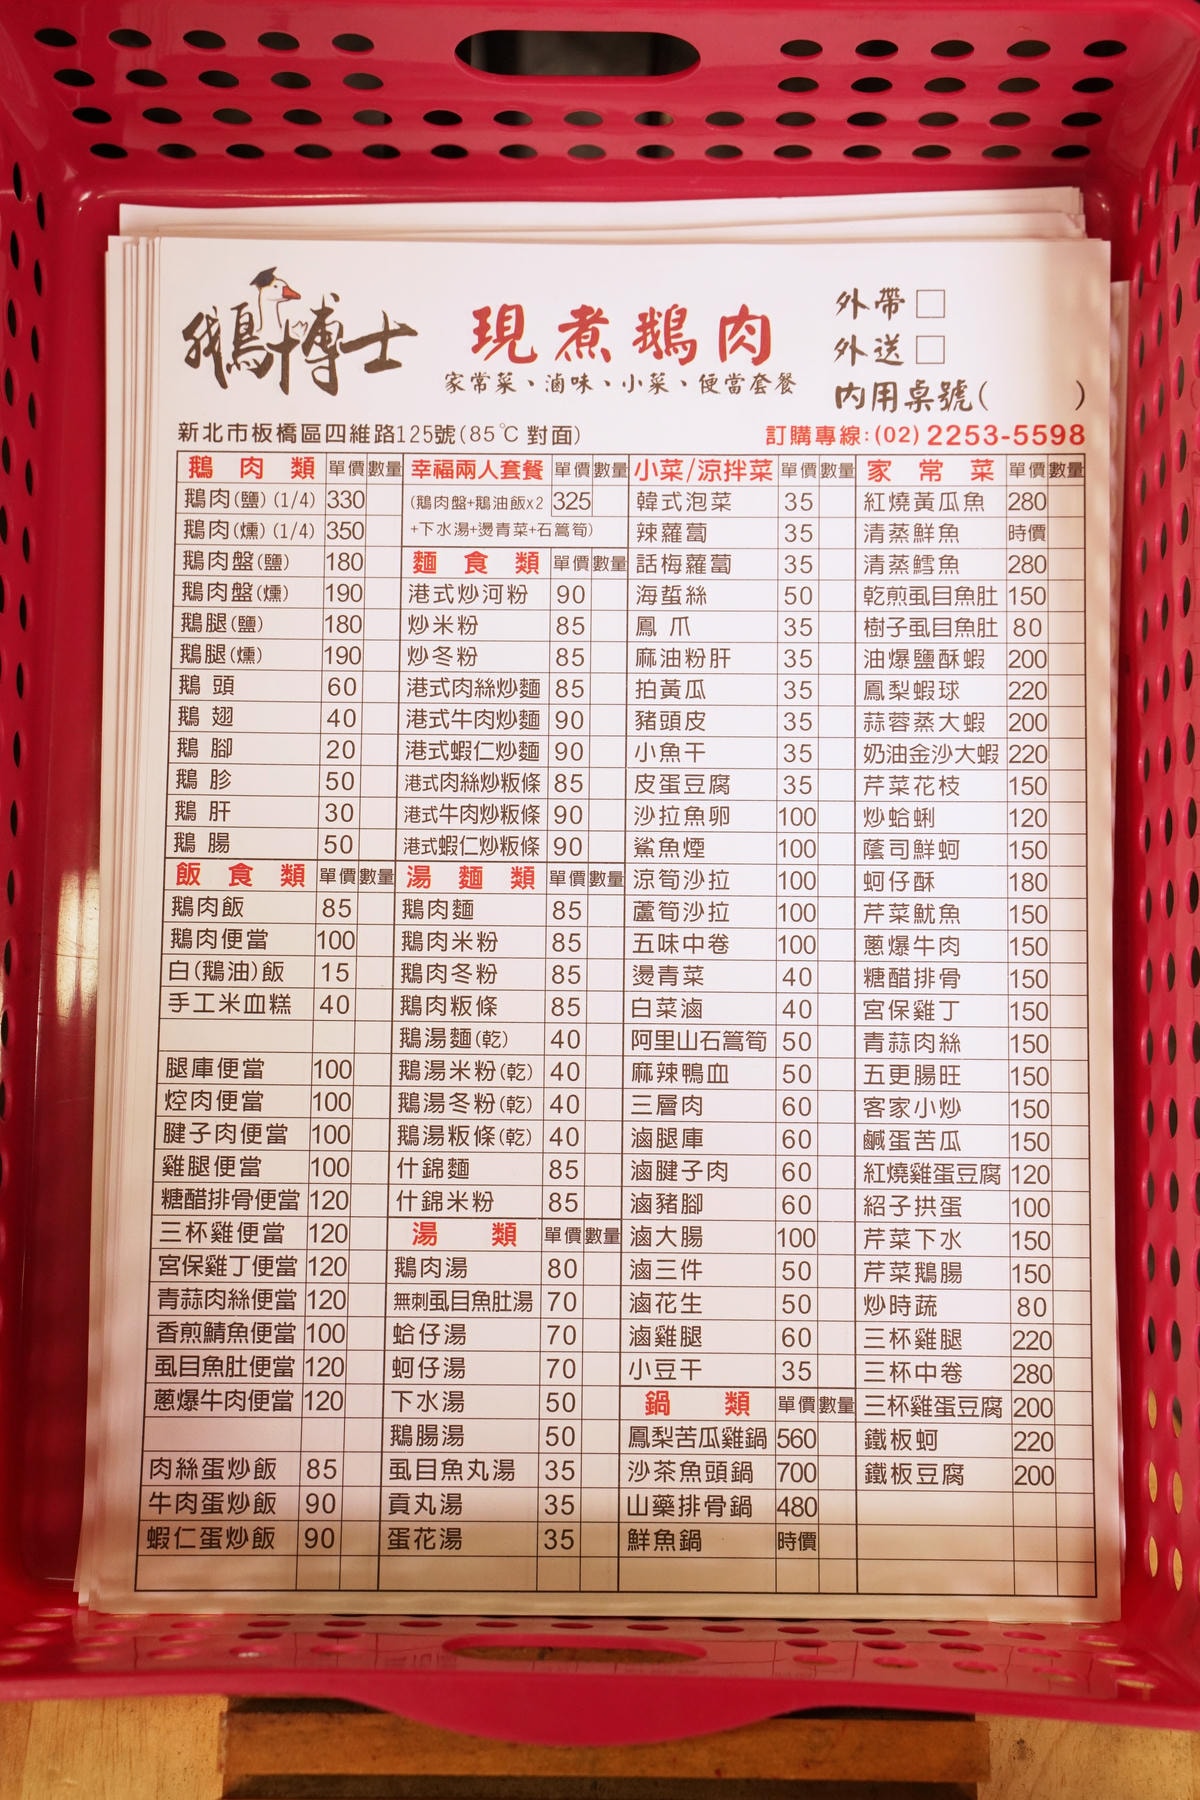 鵝博士
現煮鵝肉
家常菜、滷味、小菜、便當套餐
外帶□
外送□
內用桌號( )
新北市板橋區四維路125號(85℃ 對面)
訂購專線:(02) 2253-5598
鵝肉類 單價 數量
鵝肉(鹽) (1/4) 330
鵝肉(燻) (1/4) 350
鵝肉盤(鹽) 180
鵝肉盤(燻) 190
鵝腿(鹽) 180
鵝腿(燻) 190
鵝頭 60
鵝翅 40
鵝腳 20
鵝胗 50
鵝肝 30
鵝腸 50
飯食類 單價 數量
鵝肉飯 85
鵝肉便當 100
白(鵝油)飯 15
手工米血糕 40
腿庫便當 100
焢肉便當 100
腱子肉便當 100
雞腿便當 100
糖醋排骨便當 120
三杯雞便當 120
宮保雞丁便當 120
青蒜肉絲便當 120
香煎鯖魚便當 100
虱目魚肚便當 120
蔥爆牛肉便當 120
肉絲蛋炒飯 85
牛肉蛋炒飯 90
蝦仁蛋炒飯 90
幸福兩人套餐 單價 數量
(鵝肉盤+鵝油飯x2 325
+下水湯+燙青菜+石篙筍)
麵食類 單價 數量
港式炒河粉 90
炒米粉 85
炒冬粉 85
港式肉絲炒麵 85
港式牛肉炒麵 90
港式蝦仁炒麵 90
港式肉絲炒粄條 85
港式牛肉炒粄條 90
港式蝦仁炒粄條 90
湯麵類 單價 數量
鵝肉麵 85
鵝肉米粉 85
鵝肉冬粉 85
鵝肉粄條 85
鵝湯麵(乾) 40
鵝湯米粉(乾) 40
鵝湯冬粉(乾) 40
鵝湯粄條(乾) 40
什錦麵 85
什錦米粉 85
湯類 單價 數量
鵝肉湯 80
無刺虱目魚肚湯 70
蛤仔湯 70
蚵仔湯 70
下水湯 50
鵝腸湯 50
虱目魚丸湯 35
貢丸湯 35
蛋花湯 35
小菜/涼拌菜 單價 數量
韓式泡菜 35
辣蘿蔔 35
話梅蘿蔔 35
海蜇絲 50
鳳爪 35
麻油粉肝 35
拍黃瓜 35
豬頭皮 35
小魚干 35
皮蛋豆腐 35
沙拉魚卵 100
鯊魚煙 100
涼筍沙拉 100
蘆筍沙拉 100
五味中卷 100
燙青菜 40
白菜滷 40
阿里山石篙筍 50
麻辣鴨血 50
三層肉 60
滷腿庫 60
滷腱子肉 60
滷豬腳 60
滷大腸 100
滷三件 50
滷花生 50
滷雞腿 60
小豆干 35
鍋類 單價 數量
鳳梨苦瓜雞鍋 560
沙茶魚頭鍋 700
山藥排骨鍋 480
鮮魚鍋 時價
家常菜 單價 數量
紅燒黃瓜魚 280
清蒸鮮魚 時價
清蒸鱈魚 280
乾煎虱目魚肚 150
樹子虱目魚肚 80
油爆鹽酥蝦 200
鳳梨蝦球 220
蒜蓉蒸大蝦 200
奶油金沙大蝦 220
芹菜花枝 150
炒蛤蜊 120
蔭司鮮蚵 150
蚵仔酥 180
芹菜魷魚 150
蔥爆牛肉 150
糖醋排骨 150
宮保雞丁 150
青蒜肉絲 150
五更腸旺 150
客家小炒 150
鹹蛋苦瓜 150
紅燒雞蛋豆腐 120
紹子拱蛋 100
芹菜下水 150
芹菜鵝腸 150
炒時蔬 80
三杯雞腿 220
三杯中卷 280
三杯雞蛋豆腐 200
鐵板蚵 220
鐵板豆腐 200